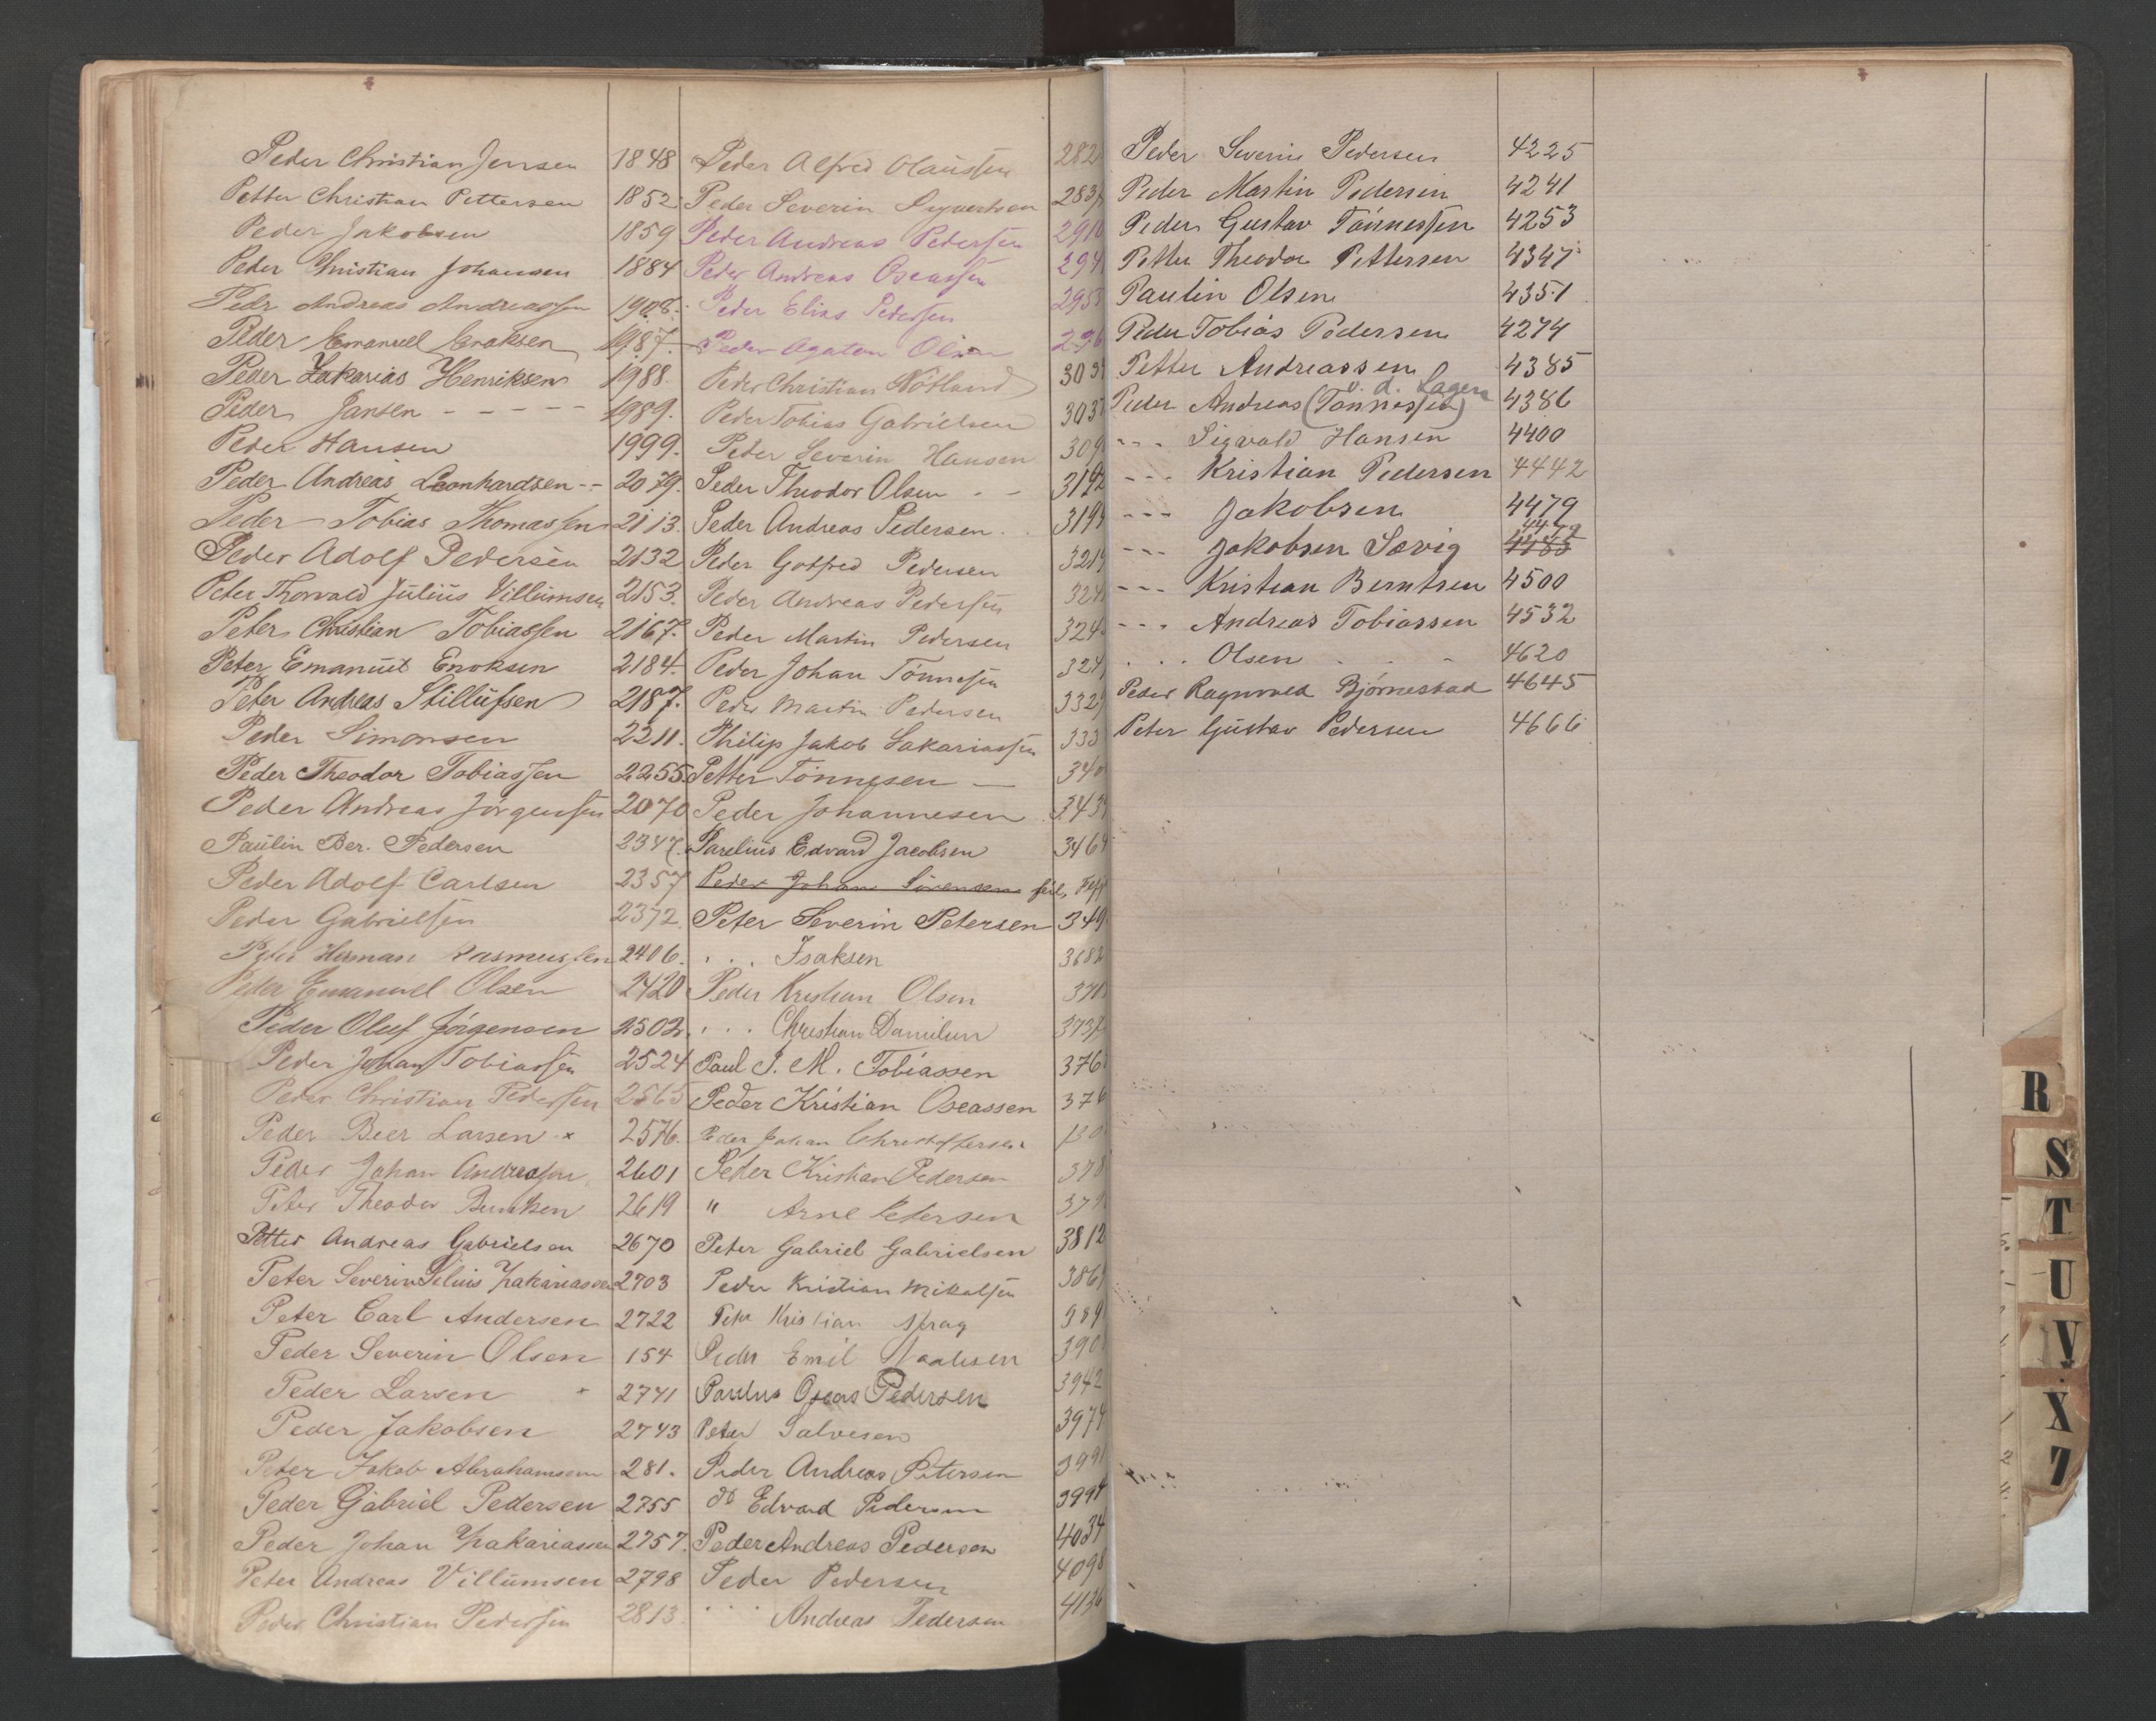 Peder Christian Jensen 1848
Petter Christian Pettersen 1852
Peder Jakobsen 1859
Peder Christian Johansen 1884
Pedr Andreas Andreassen 1908.
Peder Emanuel Enoksen 1987.
Peder Zakarias Henriksen 1988.
Peder Jansen - - - - - 1989.
Peder Hansen 1999.
Peder Andreas Leonhardsen -- 2079.
Peder Tobias Thomassen 2113.
Peder Adolf Pedersen 2132
Peter Thorvald Julius Villumsen 2153.
Peter Christian Tobiassen 2167.
Peter Emanuel Enoksen 2184.
Peter Andreas Stillufsen 2187.
Peder Simonsen 2211.
Peder Theodor Tobiassen 2255
Peder Andreas Jørgensen 2070
Paulin Ber. Pedersen 2347.
Peder Adolf Carlsen 2357
Peder Gabrielsen 2372
Peter Herman Rasmussen 2406.
Peder Emanuel Olsen 2420
Peder Oluf Jørgensen 2502.
Peder Johan Tobiassen 2524
Peder Christian Pedersen 2565
Peder Beer Larsen x 2576.
Peder Johan Andreasen 2601
Peter Theodor Berntsen 2619
Petter Andreas Gabrielsen 2670
Peter Severin Zakariassen 2703
Peter Carl Andersen 2722
Peder Severin Olsen 154
Peder Larsen x 2741
Peder Jakobsen 2743
Peter Jakob Abrahamsen 281.
Peder Gabriel Pedersen 2755
Peder Johan Zakariassen 2757.
Peter Andreas Villumsen 2798
Peder Christian Pedersen 2813
Peder Alfred Olaussen 282
Peder Severin Syvertsen 283
Peder Andreas Pedersen 291
Peder Andreas Oseassen 294
Peder Elias Pedersen 295
Peder Agaton Olsen 296
Peder Christian Nøtland 303
Peder Tobias Gabrielsen 303
Peder Severin Hansen 309
Peder Theodor Olsen - - 3192
Peder Andreas Pedersen . . 319
Peder Gotfred Pedersen 321
Peder Andreas Pedersen 324
Peder Martin Pedersen 324
Peder Johan Tønnesen 324
Peder Martin Pedersen 332
Philip Jakob Sakariassen 333
Petter Tønnesen — 340
Peder Johannesen 343
Parelius Edvard Jacobsen 346
Peder Johan Sørensen feil,
Peter Severin Petersen 349
. . . Isaksen 3682
Peder Kristian Olsen 371
. . . Christian Danielsen 373
Paul J. M. Tobiassen 376
Peder Kristian Oseassen 376
Peder Johan Christoffersen
Peder Kristian Pedersen 378
" Arne Petersen 379
Peter Gabriel Gabrielsen 3812
Peder Kristian Mikalsen 386
Peter Kristian 389
Peder Emil 390
Paulus Oseas Pedersen 3942
Peter Salvesen 397
Peder Andreas Petersen 399
do Edvard Pedersen 399
Peder Andreas Pedersen 4034
Peder Pedersen 4098
. . . Andreas Pedersen 4136
Peder Severin Pedersen 4225
Peder Martin Pedersen 4241
Peder Gustav Tønnessen 4253
Petter Theodor Pettersen 4347
Paulin Olsen 4351
Peder Tobias Pedersen 4274
Petter Andreassen 4385
v. d. Lagen
Peder Andreas (Tønnessen) 4386
- - - Sigvald Hansen 4400
- - - Kristian Pedersen 4442
- - - Jakobsen 4479
- - - Jakobsen Sævig 4485 4479
- - - Kristian Berntsen 4500
- - - Andreas Tobiassen 4532
. . . Olsen . . - 4620
Peder Ragnvald Bjørnestad 4645
Peter Gustav Pedersen 4666
R
S
T
U
V
X